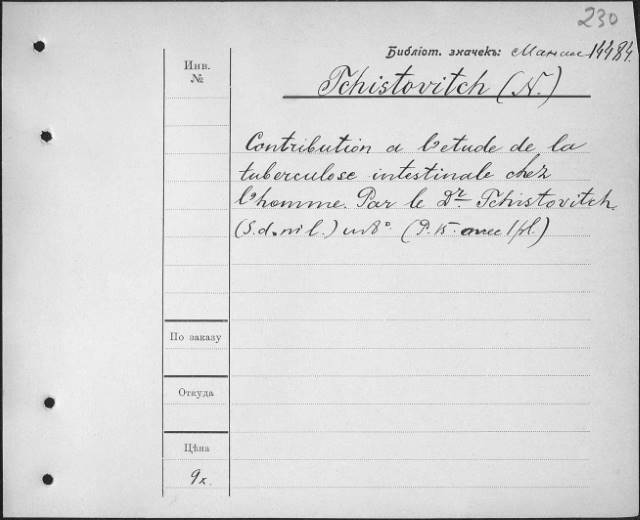 230
Библіот. значекъ: 14484.
Инв.
№
Tchistovitch (N.)
Contribution a l'etude de la
tuberculose intestinale chez
l'homme. Par le Dr Tchistovitch.
(S. d. ni l.) in 8°. (P. 15. avec 1 pl.)
По заказу
Откуда
Цѣна
9к.